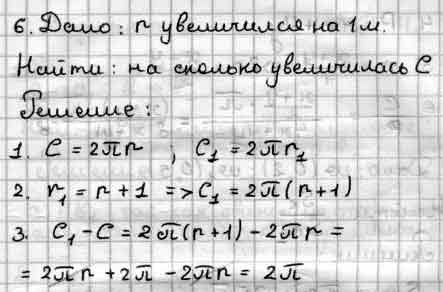 6. Дано: r увеличился на 1 м.
Найти: на сколько увеличилась C
Решение:
1. C = 2πr ; C₁ = 2πr₁
2. r₁ = r + 1 => C₁ = 2π(r+1)
3. C₁ - C = 2π(r+1) - 2πr =
= 2πr + 2π - 2πr = 2π